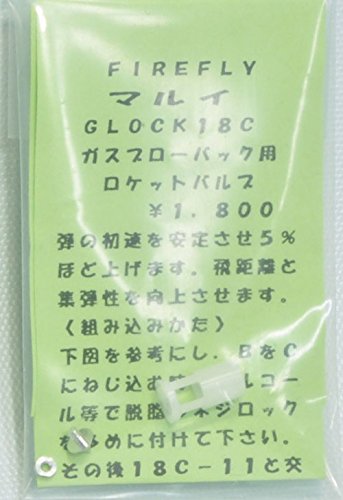 FIREFLY
マルイ
GLOCK18C
ガスブローバック用
ロケットバルブ
¥1,800
弾の初速を安定させ5%
ほど上げます。飛距離と
集弾性を向上させます。
〈組み込みかた〉
下図を参考にし、BをC
にねじ込む ルコー
ル等で脱脂 ネジロック
を めに付けて下さい。
その後18C-11と交